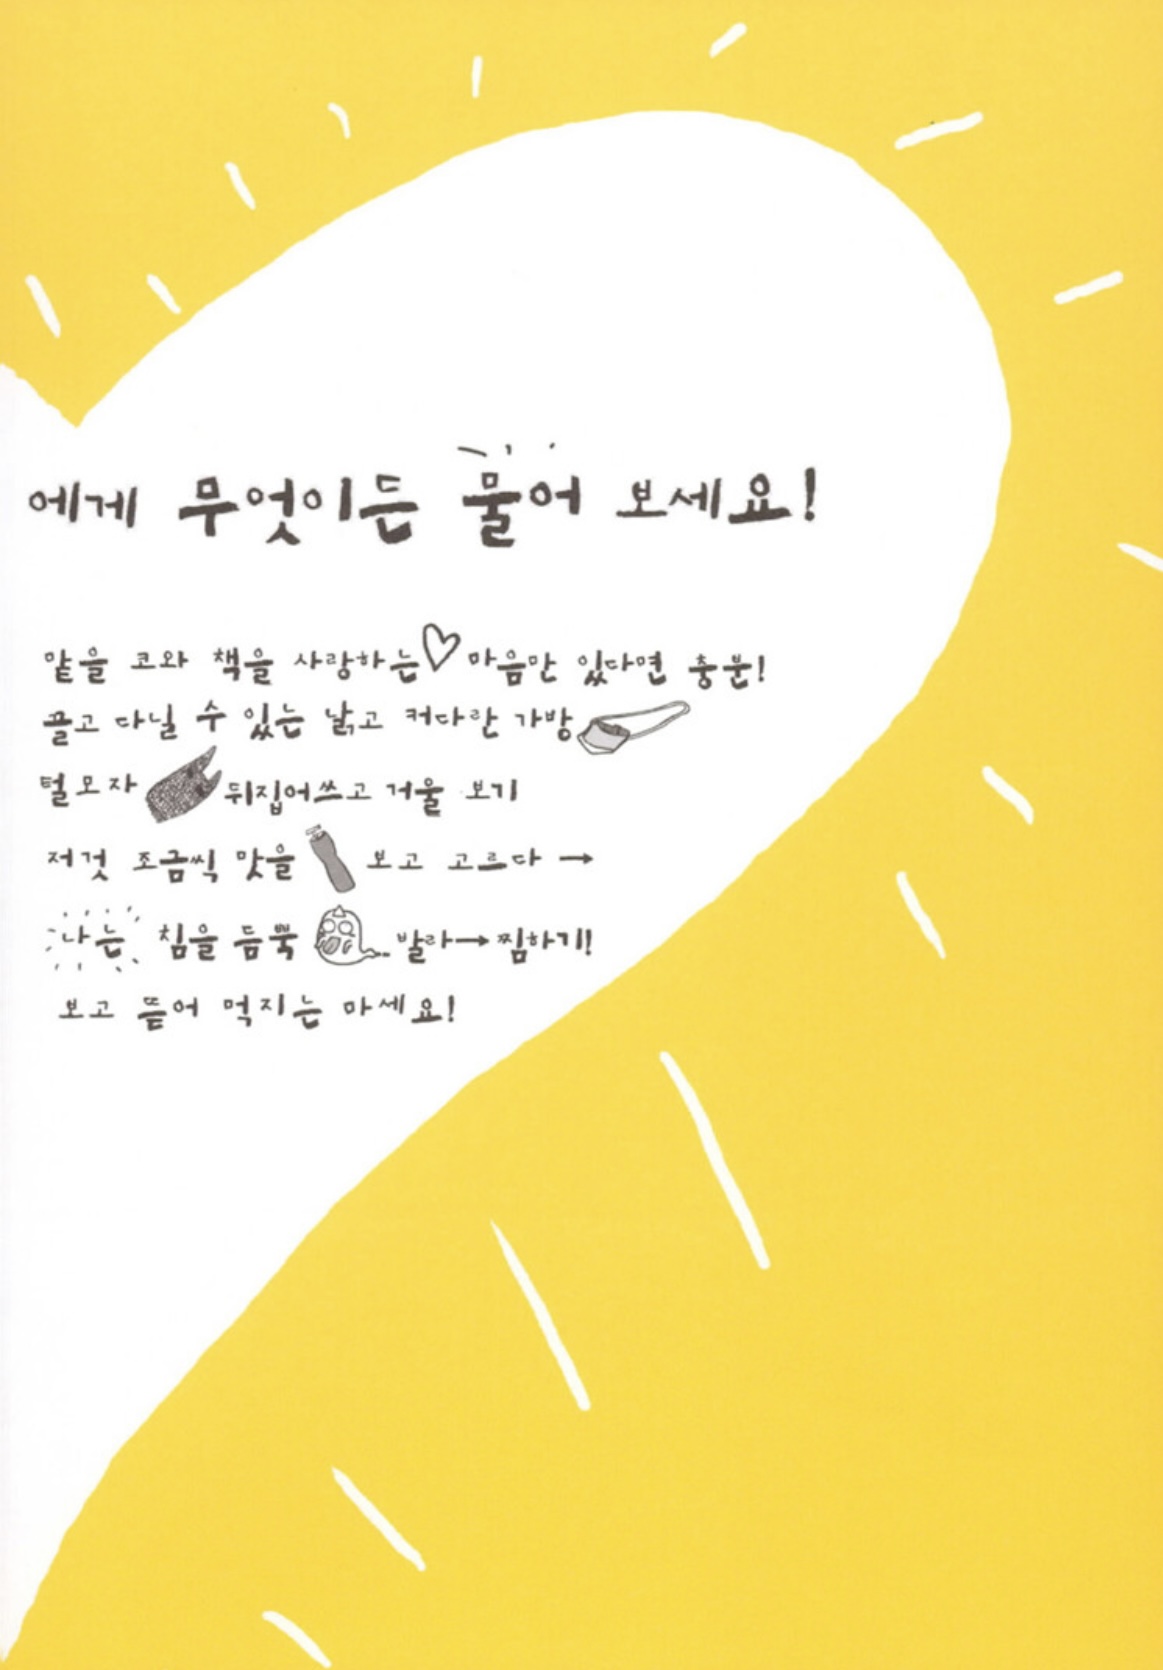 에게 무엇이든 물어 보세요!
맡을 코와 책을 사랑하는 마음만 있다면 충분!
끌고 다닐 수 있는 낡고 커다란 가방
털모자 뒤집어쓰고 거울 보기
저것 조금씩 맛을 보고 고르다 →
나는 침을 듬뿍 발라→찜하기!
보고 뜯어 먹지는 마세요!